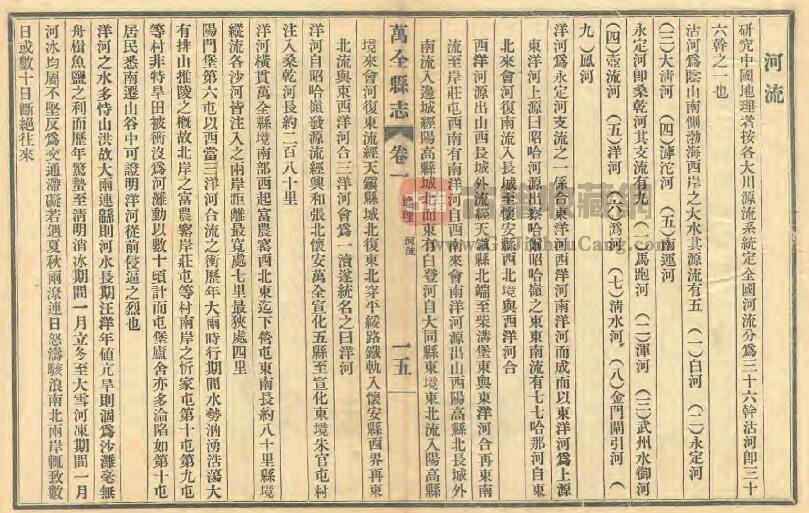 河流
研究中國地理者按各大川源流系統定全國河流分爲三十六幹沽河卽三十
六幹之一也
沽河爲陰山南側渤海西岸之大水其源流有五（一）白河（二）永定河
（三）大淸河（四）滹沱河（五）南運河
永定河卽桑乾河其支流有九（一）馬跑河（二）渾河（三）武州水御河
（四）壺流河（五）洋河（六）媯河（七）淸水河（八）金門閘引河（
九）鳳河
洋河爲永定河支流之一係合東洋河西洋河南洋河而成而以東洋河爲上源
東洋河上源曰昭哈河源出察哈爾昭哈嶺之東東南流有七七哈那河自東
北來會河復南流入長城至懷安縣西北境與西洋河合
西洋河源出山西長城外流經天鎭縣北端至柴溝堡東與東洋河合再東南
流至岸莊屯西南有南洋河自西南來會南洋河源出山西陽高縣北長城外
南流入邊城經陽高縣城北而東有白登河自大同縣東境東北流入陽高縣
萬全縣志
卷一
地理
河流
一五
境來會河復東流經天鎭縣城北復東北穿平綏路鐵軌入懷安縣西界再東
北流與東西洋河合三洋河會爲一瀆遂統名之曰洋河
洋河自昭哈嶺發源流經興和張北懷安萬全宣化五縣至宣化東境朱官屯村
注入桑乾河長約二百八十里
洋河橫貫萬全縣境南部西起富農窰西北東迄下營屯東南長約八十里縣境
縱流各沙河皆注入之兩岸距離最寬處七里最狹處四里
陽門堡第六屯以西當三洋河合流之衝歷年大雨時行期間水勢洶湧浩蕩大
有排山推陵之槪故北岸之富農窰岸莊屯等村南岸之忻家屯第十屯第九屯
等村非特旱田被衝沒爲河灘動以數十頃計而屯堡廬舍亦多淪陷如第十屯
居民悉南遷山谷中可證明洋河從前侵逼之烈也
洋河之水多恃山洪故大雨連緜則河水長期汪洋年値亢旱則涸爲沙灘毫無
舟楫魚鹽之利而歷年驚蟄至淸明消冰期間一月立冬至大雪河凍期間一月
河冰均屬不堅反爲交通滯礙若遇夏秋雨潦連日怒濤駭浪南北兩岸輒致數
日或數十日斷絕往來